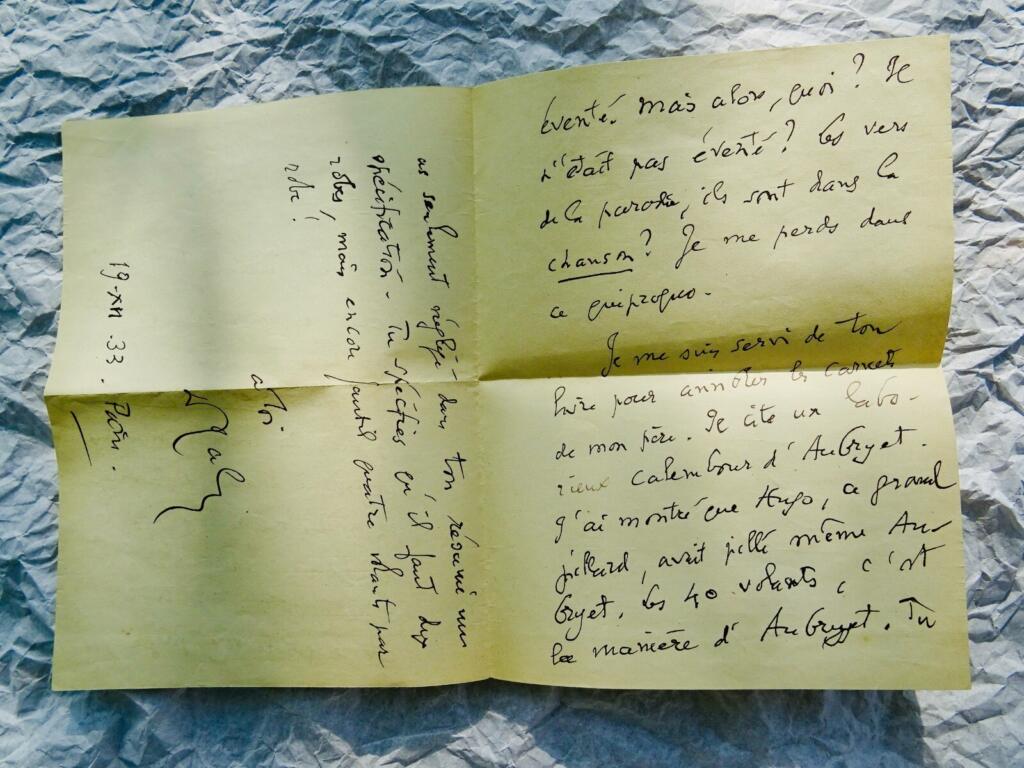 éventé. Mais alors, quoi ? Il
n'était pas éventé ? Les vers
de la parodie, ils sont dans la
chanson ? Je me perds dans
ce quiproquo.
Je me suis servi de ton
livre pour annoter les carnets
de mon père. Je cite un labo-
rieux calembour d'Aubryet.
J'ai montré que Hugo, ce grand
pillard, avait pillé même Au-
bryet. Les 40 volants, c'est
la manière d'Aubryet. Tu
as seulement négligé dans ton résumé une
spécification. Tu spécifies qu'il faut dix
robes, mais encore faut-il quatre volants par
robe !
à toi.
19.XII.33. Paris.